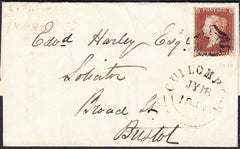 Edwd Harley Esqr
Solicitor
Broad St
Bristol
CULLOMPTON
JY 18